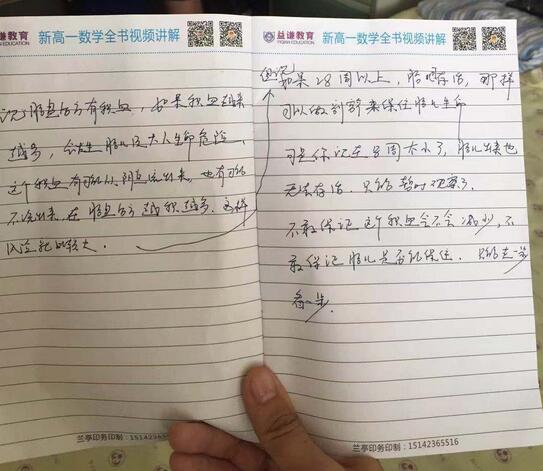 益谦教育
YIQIAN EDUCATION
新高一数学全书视频讲解
记胎盘后方有积血,如果积血越来
越多,会发生胎儿及大人生命危险,
这个积血有可能从阴道流出来,也有可能
不流出来,在胎盘后方越积越多,这样
风险就比较大.
兰亭印务印制:15142365
益谦教育
YIQIAN EDUCATION
新高一数学全书视频讲解
如果28周以上,胎儿存活,那样
可以做剖宫来保住胎儿生命
可是你现在周太小了,胎儿出来也
无法存活.只能暂时观察了.
不敢保证这个积血会不会减少,不
敢保证胎儿是否能保住.只能走一步
看一步.
兰亭印务印制:15142365516